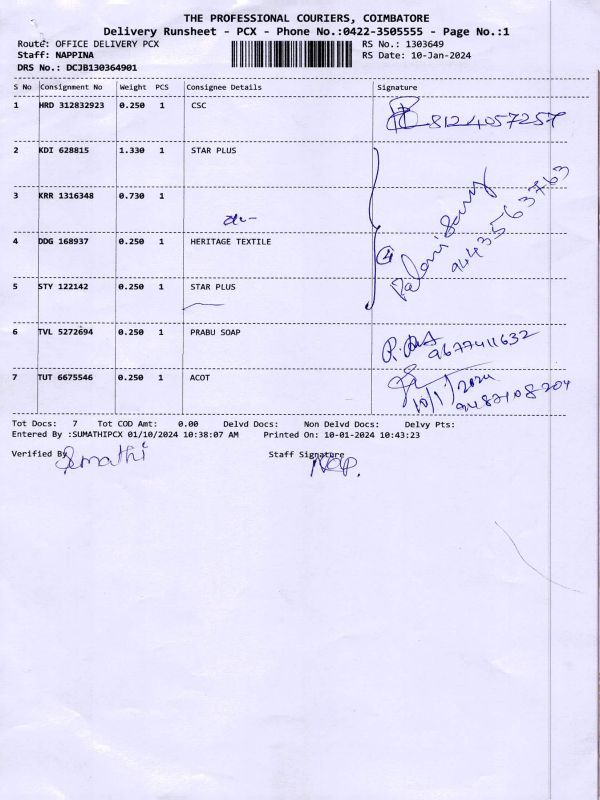 THE PROFESSIONAL COURIERS, COIMBATORE
Delivery Runsheet - PCX - Phone No.:0422-3505555 - Page No.:1
Route: OFFICE DELIVERY PCX RS No.: 1303649
Staff: NAPPINA RS Date: 10-Jan-2024
DRS No.: DCJB130364901
S No Consignment No Weight PCS Consignee Details Signature
1 HRD 312832923 0.250 1 CSC
8124057257
2 KDI 628815 1.330 1 STAR PLUS
3 KRR 1316348 0.730 1
4 DDG 168937 0.250 1 HERITAGE TEXTILE
4
9443563763
5 STY 122142 0.250 1 STAR PLUS
6 TVL 5272694 0.250 1 PRABU SOAP
9677411632
7 TUT 6675546 0.250 1 ACOT
10/1/2024
9487108204
Tot Docs: 7 Tot COD Amt: 0.00 Delvd Docs: Non Delvd Docs: Delvy Pts:
Entered By :SUMATHIPCX 01/10/2024 10:38:07 AM Printed On: 10-01-2024 10:43:23
Verified By Sumathi Staff Signature Nap.